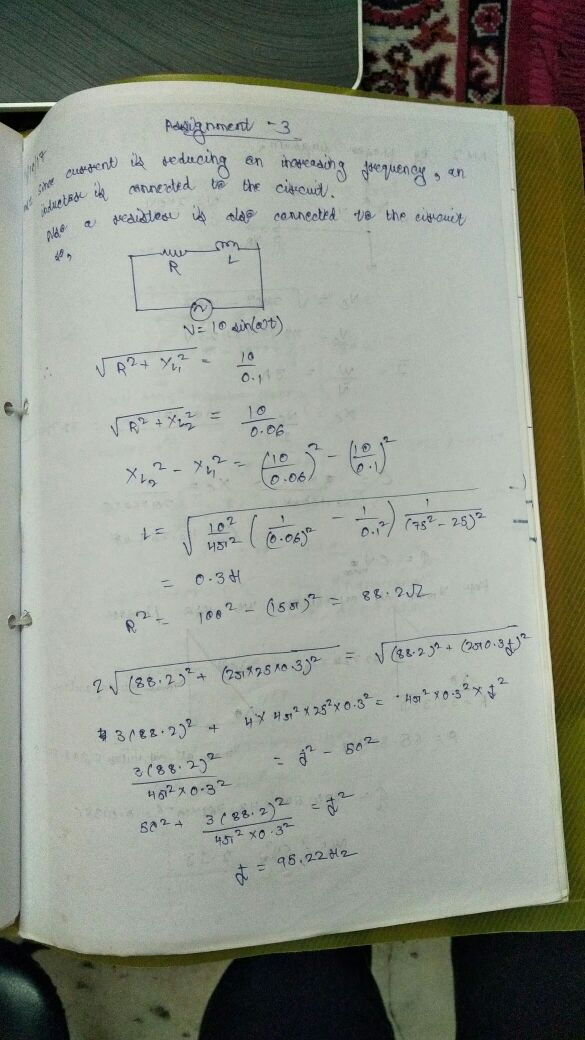 Assignment - 3
since current is reducing on increasing frequency, an
inductor is connected to the circuit.
Also a resistor is also connected to the circuit
so,
R L
V = 10 sin(ωt)
∴ √(R² + X_L₁²) = 10/0.1
√(R² + X_L₂²) = 10/0.06
X_L₂² - X_L₁² = (10/0.06)² - (10/0.1)²
L = √(10²/4π² (1/(0.06)² - 1/0.1²) 1/(75² - 25)²)
= 0.3H
R² = 100² - (15π)² = 88.2Ω
2√((88.2)² + (2π×25×0.3)²) = √((88.2)² + (2π0.3f)²)
3(88.2)² + 4×4π²×25²×0.3² = 4π²×0.3²×f²
3(88.2)²/4π²×0.3² = f² - 50²
50² + 3(88.2)²/4π²×0.3² = f²
f = 95.22Hz